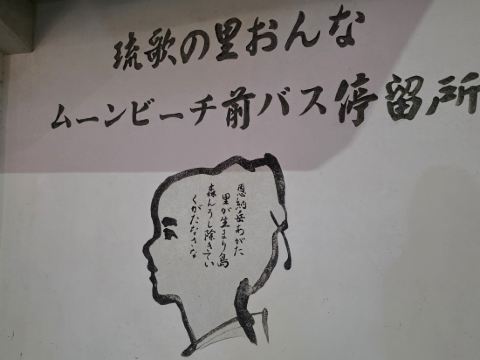 琉歌の里おんな
ムーンビーチ前バス停留所
恩納岳あがた
里が生まり島
森んうし除きてい
くがたなさな